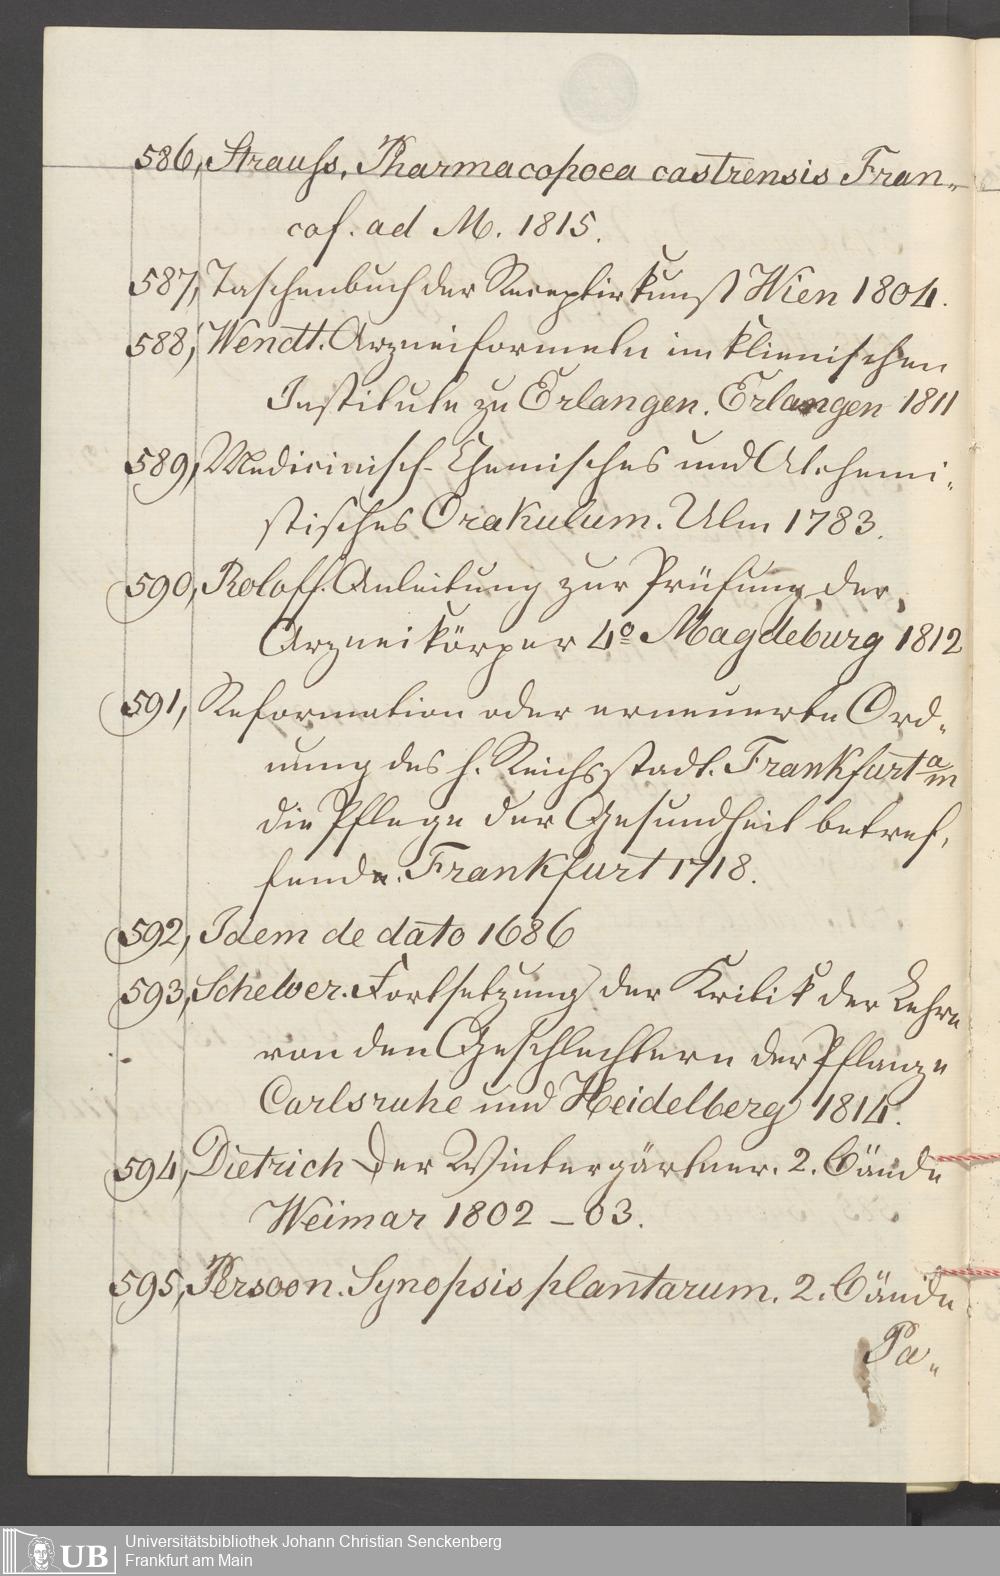 586, Strauss. Pharmacopoea castrensis Fran„
cof. ad M. 1815.
587, Taschenbuch der Receptirkunst Wien 1804.
588, Wendt. Arzneiformeln im klienischen
Institute zu Erlangen. Erlangen 1811
589, Medicinisch-Chemisches und Alchemi„
stisches Orakulum. Ulm 1783.
590, Roloff. Anleitung zur Prüfung der
Arzneikörper 4o Magdeburg 1812
591, Reformation oder erneuerte Ord„
nung des h. Reichsstadt. Frankfurt a/m
die Pflege der Gesundheit betref„
fend. Frankfurt 1718.
592, Idem de dato 1686
593, Schelver. Fortsetzung der Kritik der Lehre
von den Geschlechtern der Pflanze
Carlsruhe und Heidelberg 1814.
594, Dietrich Der Wintergärtner. 2. Bände
Weimar 1802 – 03.
595, Persoon. Synopsis plantarum. 2. Bände
Pa„
UB
Universitätsbibliothek Johann Christian Senckenberg
Frankfurt am Main